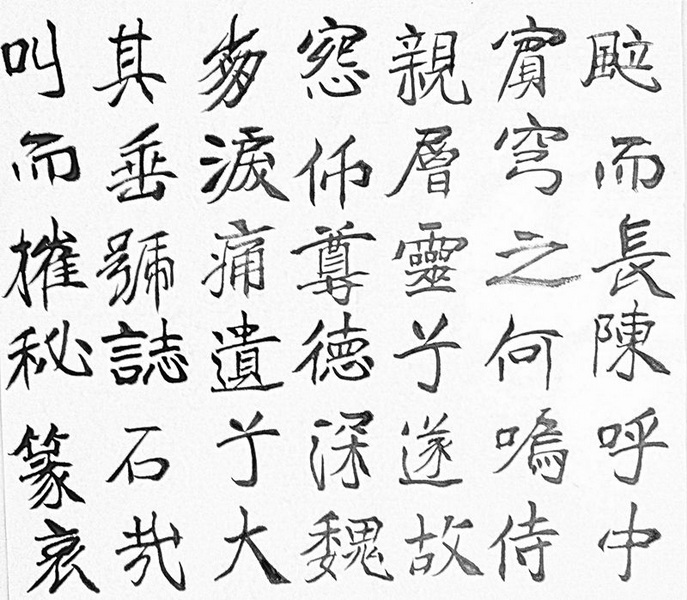 而長陳呼中
賓穹之何嗚侍
親層靈兮遂故
窓仰尊德深魏
淚痛遺兮大
其垂號誌石哉
叫而摧秘篆哀